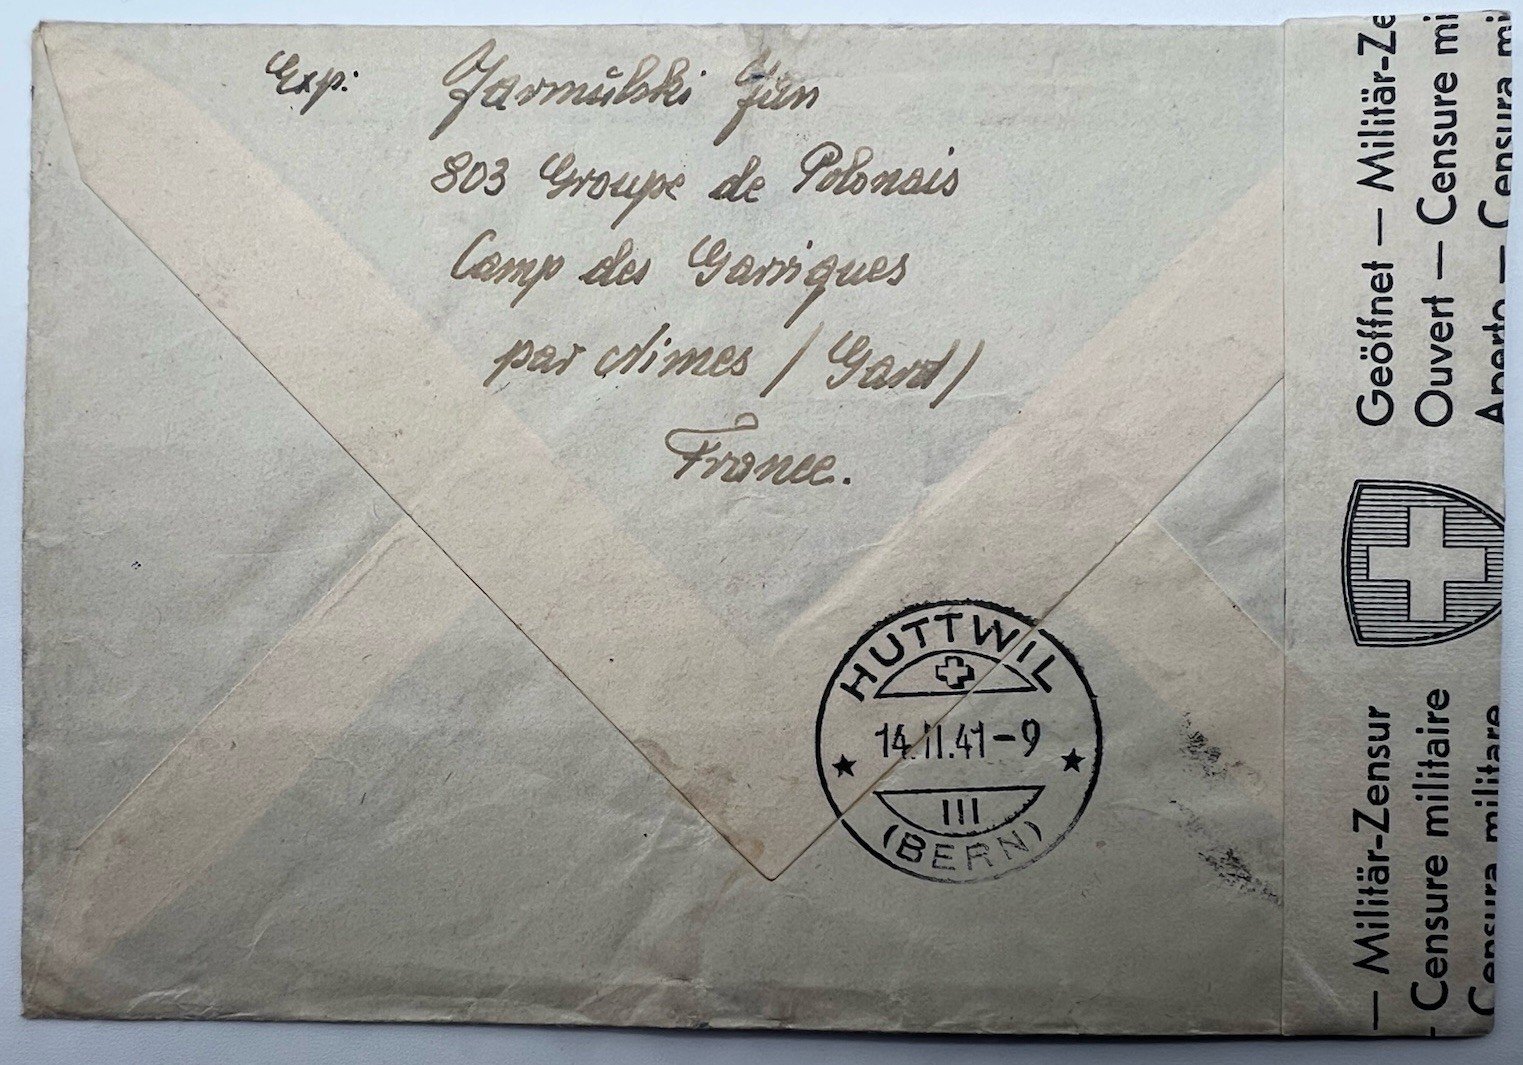 Exp: Jarmulski Jan
803 Groupe de Polonais
Camp des Garrigues
par Nimes / Gard/
France.
HUTTWIL
14.II.41-9
III
(BERN)
Geöffnet — Militär-Ze
Ouvert — Censure mi
Aperto — Censura mi
— Militär-Zensur
- Censure militaire
Censura militare